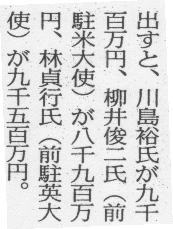 出すと、川島裕氏が九千
百万円、柳井俊二氏（前
駐米大使）が八千九百万
円、林貞行氏（前駐英大
使）が九千五百万円。